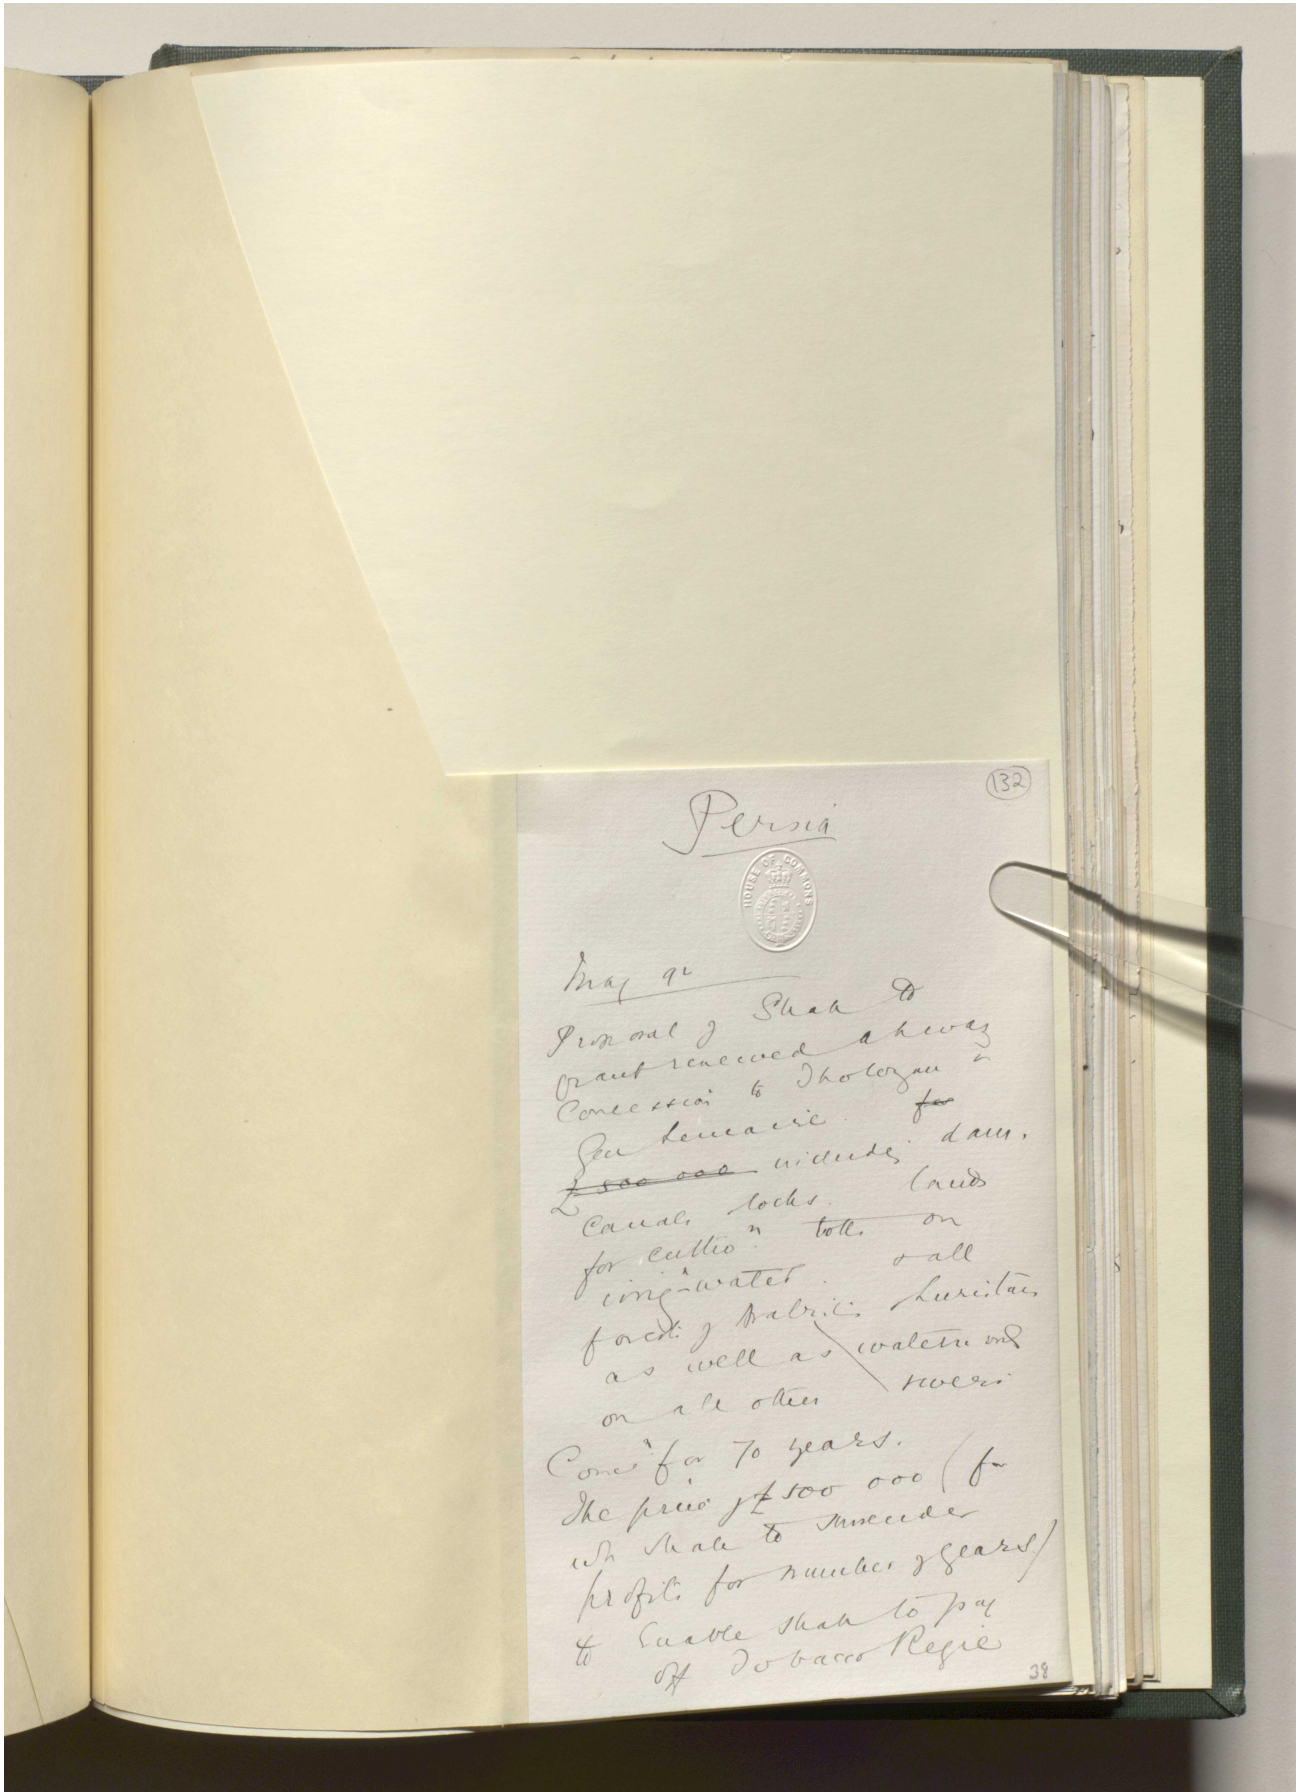 132
Persia
HOUSE OF COMMONS
May 92
Proposal of Shah to
grant renewed Ahwaz
Concession to Tholozan &
Gen Lemaire. for
£500 000 includes dam.
Canals locks. lands
for cultio.n tolls on
irrig.n water. & all
forests of Arabis. Luristan
as well as waterwork
on all other rivers
Conc.n for 70 years.
The price of £500 000 (for
wh Shah to surrender
profits for number of years)
to Enable Shah to pay
off Tobacco Regie
38